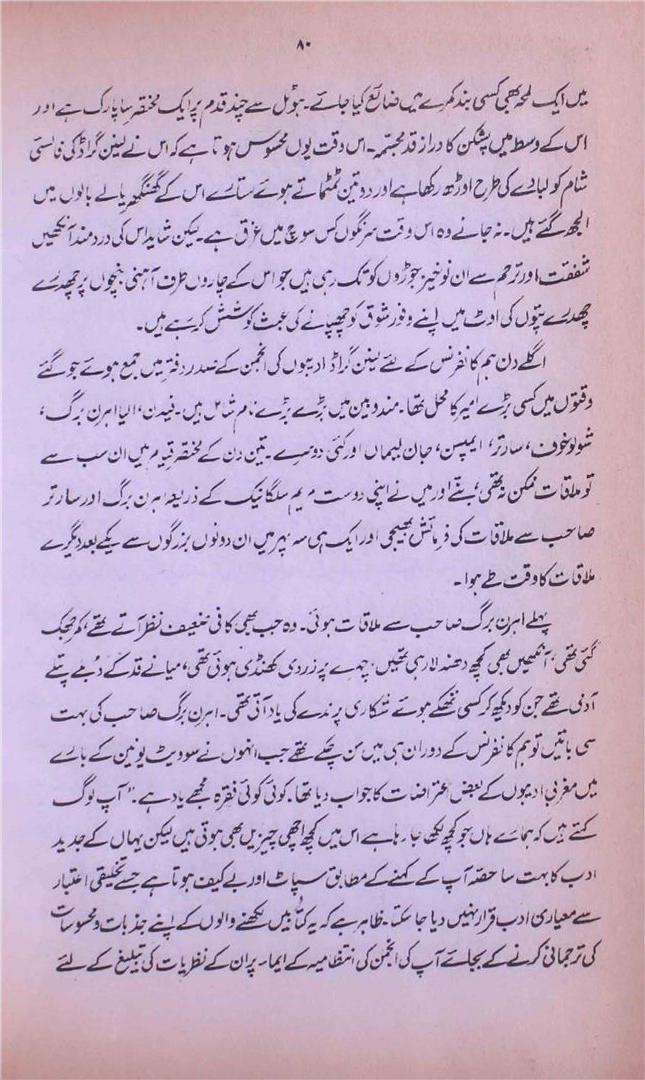 ۸۰
میں ایک لمحہ بھی کسی بند کمرے میں ضائع کیا جائے۔ ہوٹل سے چند قدم پر ایک مختصر سا پارک ہے اور
اس کے وسط میں پشکن کا دراز قد مجسمہ۔ اس وقت یوں محسوس ہوتا ہے کہ اس نے لینن گراڈ کی فالسئی
شام کو لبادے کی طرح اوڑھ رکھا ہے اور دو تین ٹمٹماتے ہوئے ستارے اس کے گھنگھریالے بالوں میں
الجھ گئے ہیں۔ نہ جانے وہ اس وقت سرنگوں کس سوچ میں غرق ہے۔ لیکن شاید اس کی دردمند آنکھیں
شفقت اور ترحم سے ان نوخیز جوڑوں کو تک رہی ہیں جو اس کے چاروں طرف آہنی بنچوں پر چھدرے
چھدرے پتوں کی اوٹ میں اپنے وفور شوق کو چھپانے کی عبث کوشش کر رہے ہیں۔
اگلے دن ہم کانفرنس کے لئے لینن گراڈ ادیبوں کی انجمن کے صدر دفتر میں جمع ہوئے جو گئے
وقتوں میں کسی بڑے امیر کا محل تھا۔ مندوبین میں بڑے بڑے نام شامل ہیں۔ فیدن، ایلیا اہرن برگ،
شولوخوف، سارتر، ایمپسن، جان لیہماں اور کئی دوسرے۔ تین دن کے مختصر قیام میں ان سب سے
تو ملاقات ممکن نہ تھی، میں نے اپنی دوست مریم سلگانیک کے ذریعہ اہرن برگ اور سارتر
صاحب سے ملاقات کی فرمائش بھیجی اور ایک ہی سہ پہر میں ان دونوں بزرگوں سے یکے بعد دیگرے
ملاقات کا وقت طے ہوا۔
پہلے اہرن برگ صاحب سے ملاقات ہوئی۔ وہ جب بھی کافی ضعیف نظر آتے تھے، کمر جھک
گئی تھی، آنکھیں بھی کچھ دھندلا رہی تھیں، چہرے پر زردی کھنڈی ہوئی تھی، میانے قد کے دُبلے پتلے
آدمی تھے جن کو دیکھ کر کسی تھکے ہوئے شکاری پرندے کی یاد آتی تھی۔ اہرن برگ صاحب کی بہت
سی باتیں تو ہم کانفرنس کے دوران ہی میں سن چکے تھے جب انہوں نے سوویٹ یونین کے بارے
میں مغربی ادیبوں کے بعض اعتراضات کا جواب دیا تھا۔ کوئی کوئی فقرہ مجھے یاد ہے۔ "آپ لوگ
کہتے ہیں کہ ہمارے ہاں جو کچھ لکھا جا رہا ہے اس میں کچھ اچھی چیزیں بھی ہوتی ہیں لیکن یہاں کے جدید
ادب کا بہت سا حصّہ آپ کے کہنے کے مطابق سپاٹ اور بے کیف ہوتا ہے جسے تخلیقی اعتبار
سے معیاری ادب قرار نہیں دیا جا سکتا۔ ظاہر ہے کہ یہ کتابیں لکھنے والوں کے اپنے جذبات و محسوسات
کی ترجمانی کرنے کے بجائے آپ کی انجمن کی انتظامیہ کے ایماء پر ان کے نظریات کی تبلیغ کے لئے